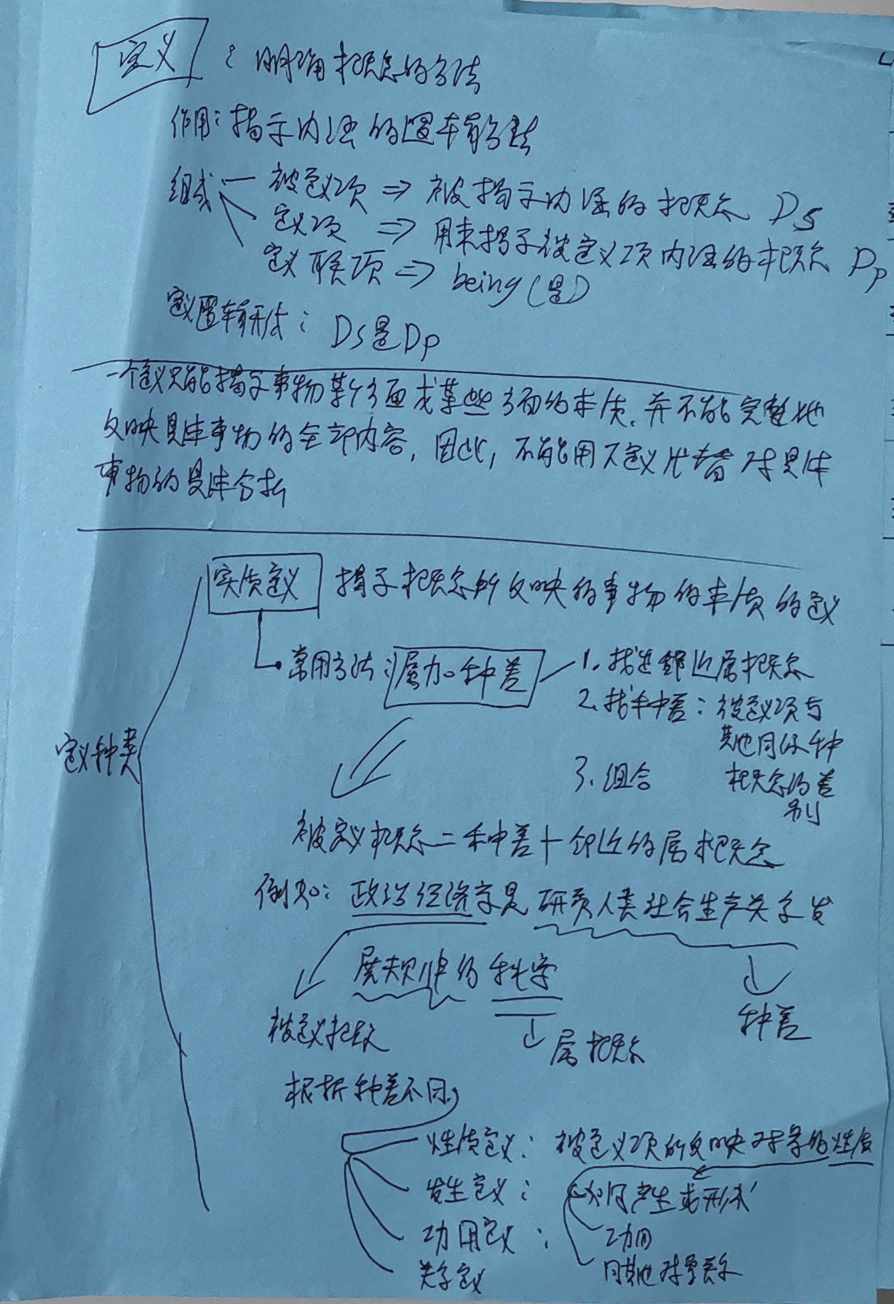 定义：明确概念的方法
作用：揭示内涵的逻辑方法
组成 被定义项 ⇒ 被揭示内涵的概念 Ds
定义项 ⇒ 用来揭示被定义项内涵的概念 Dp
定义联项 ⇒ being(是)
定义逻辑形式：Ds是Dp
一个定义只能揭示事物某个方面或某些方面的本质，并不能完整地
反映具体事物的全部内容，因此，不能用下定义代替对具体
事物的具体分析
定义种类
实质定义 揭示概念所反映的事物的本质的定义
常用方法：属加种差
1. 找出邻近属概念
2. 找种差：被定义项与
其他同级种
概念的差
别
3. 组合
被定义概念 = 种差 + 邻近的属概念
例如：政治经济学是研究人类社会生产关系发
展规律的科学
种差
被定义概念
属概念
根据种差不同
性质定义：被定义项所反映对象的性质
发生定义：如何产生或形成
功用定义：功用
关系定义 同其他对象关系